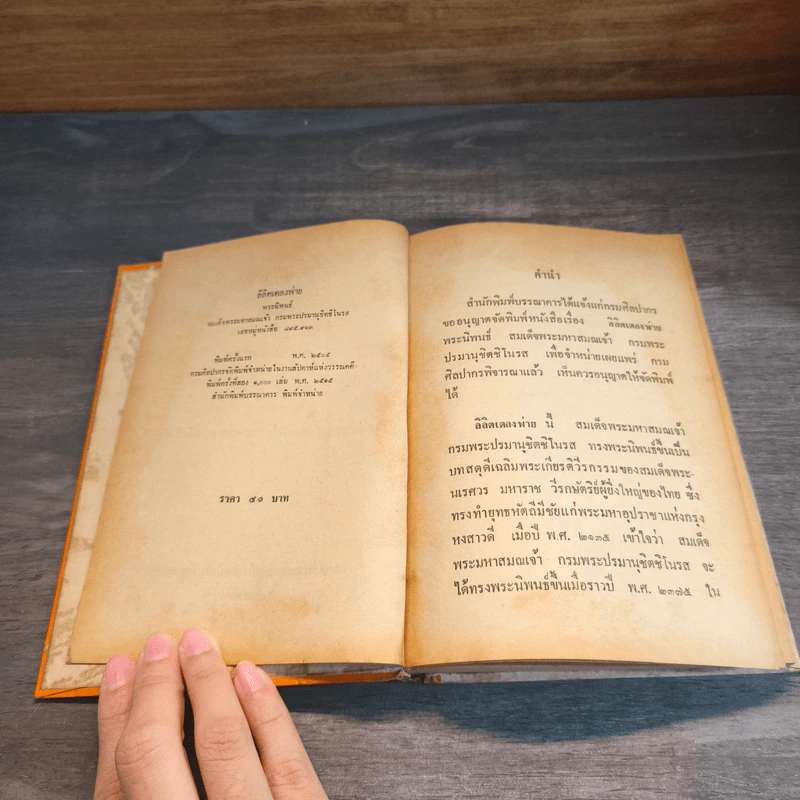 ลิลิตเตลงพ่าย
พระนิพนธ์
สมเด็จพระมหาสมณเจ้า กรมพระปรมานุชิตชิโนรส
เลขหมู่หนังสือ ๘๙๕.๙๑๓
พิมพ์ครั้งแรก พ.ศ. ๒๕๐๕
กรมศิลปากรจัดพิมพ์จำหน่ายในงานสัปดาห์แห่งวรรณคดี
พิมพ์ครั้งที่สอง ๑,๐๐๐ เล่ม พ.ศ. ๒๕๑๕
สำนักพิมพ์บรรณาคาร พิมพ์จำหน่าย
ราคา ๔๐ บาท
คำนำ
สำนักพิมพ์บรรณาคารได้แจ้งแก่กรมศิลปากร
ขออนุญาตจัดพิมพ์หนังสือเรื่อง ลิลิตเตลงพ่าย
พระนิพนธ์ สมเด็จพระมหาสมณเจ้า กรมพระ
ปรมานุชิตชิโนรส เพื่อจำหน่ายเผยแพร่ กรม
ศิลปากรพิจารณาแล้ว เห็นควรอนุญาตให้จัดพิมพ์
ได้
ลิลิตเตลงพ่าย นี้ สมเด็จพระมหาสมณเจ้า
กรมพระปรมานุชิตชิโนรส ทรงพระนิพนธ์ขึ้นเป็น
บทสดุดีเฉลิมพระเกียรติวีรกรรมของสมเด็จพระ-
นเรศวร มหาราช วีรกษัตริย์ผู้ยิ่งใหญ่ของไทย ซึ่ง
ทรงทำยุทธหัตถีมีชัยแก่พระมหาอุปราชาแห่งกรุง
หงสาวดี เมื่อปี พ.ศ. ๒๑๓๕ เข้าใจว่า สมเด็จ
พระมหาสมณเจ้า กรมพระปรมานุชิตชิโนรส จะ
ได้ทรงพระนิพนธ์ขึ้นเมื่อราวปี พ.ศ. ๒๓๗๕ ใน